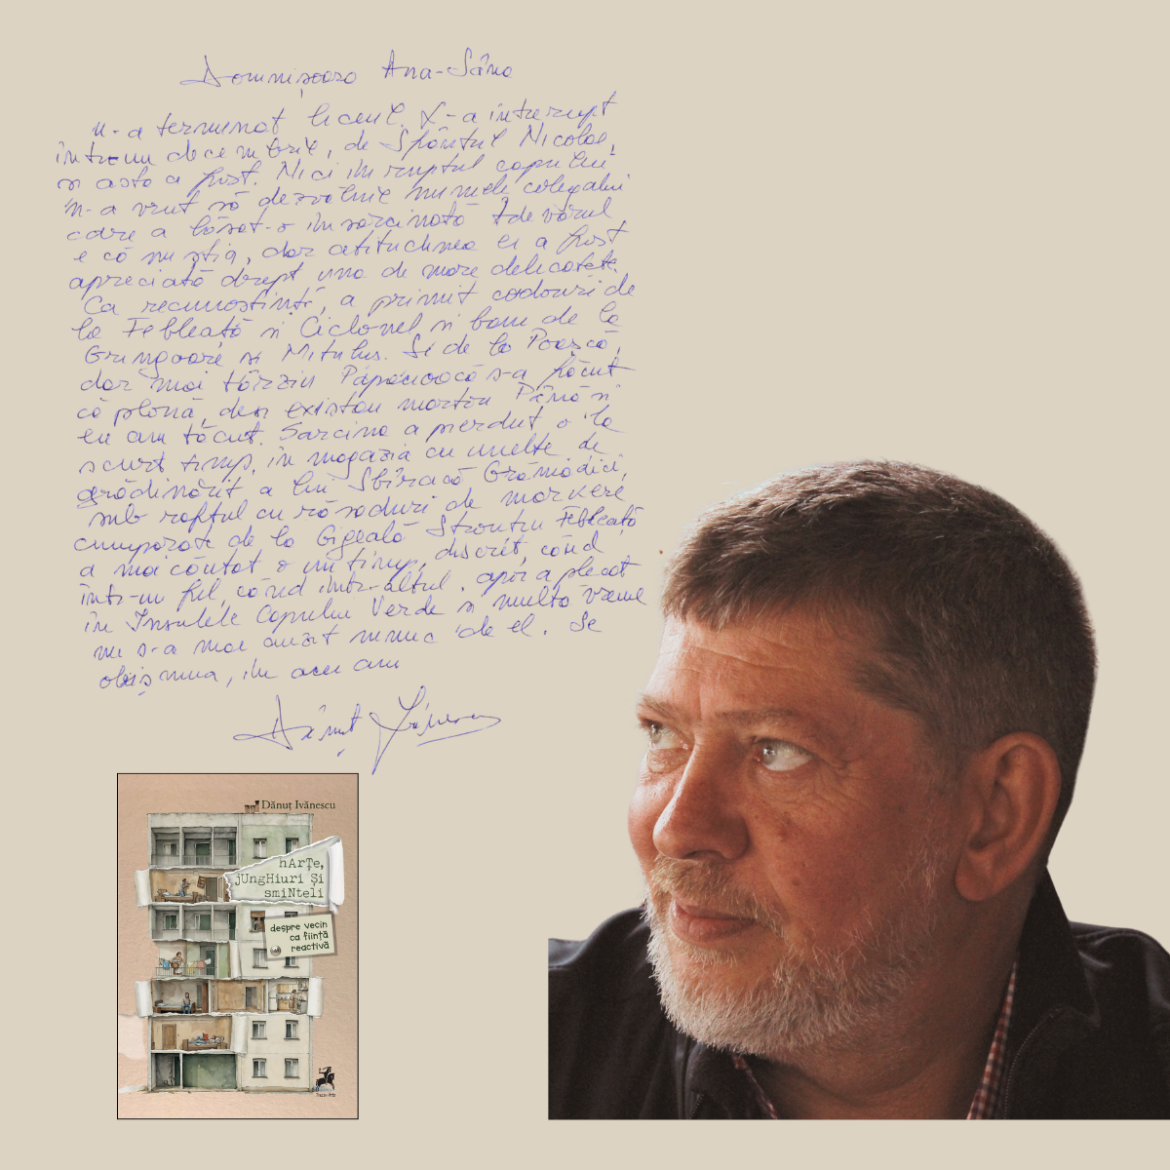 Domnișoara Ana-Sâna
N-a terminat liceul. L-a întrerupt
într-un decembrie, de Sfântul Nicolae,
și asta a fost. Nici în ruptul capului
n-a vrut să dezvăluie numele colegului
care a lăsat-o însărcinată. Adevărul
e că nu știa, dar atitudinea ei a fost
apreciată drept una de mare delicatețe.
Ca recunoștință, a primit cadouri de
la Febleață și Ciclonel și bani de la
Gringoare și Mitulus. Și de la Poașcă,
dar mai târziu Păpănoacă s-a făcut
că plouă, deși existau martori. Până și
eu am tăcut. Sarcina a pierdut-o la
scurt timp, în magazia cu unelte de
grădinărit a lui Sbîracă Grămădici,
sub raftul cu răsaduri de
cumpărate de la Gigeală Strontiu. Febleață
a mai căutat-o un timp, discret, când
într-un fel, când într-altul. apoi a plecat
în Insulele Capului Verde și multă vreme
nu s-a mai auzit nimic de el. Se
obișnuia, în acei ani
Dănuț Ivănescu
Dănuț Ivănescu
hArȚe,
jUngHiuri Și
smiNteli
despre vecin
ca ființă
reactivă